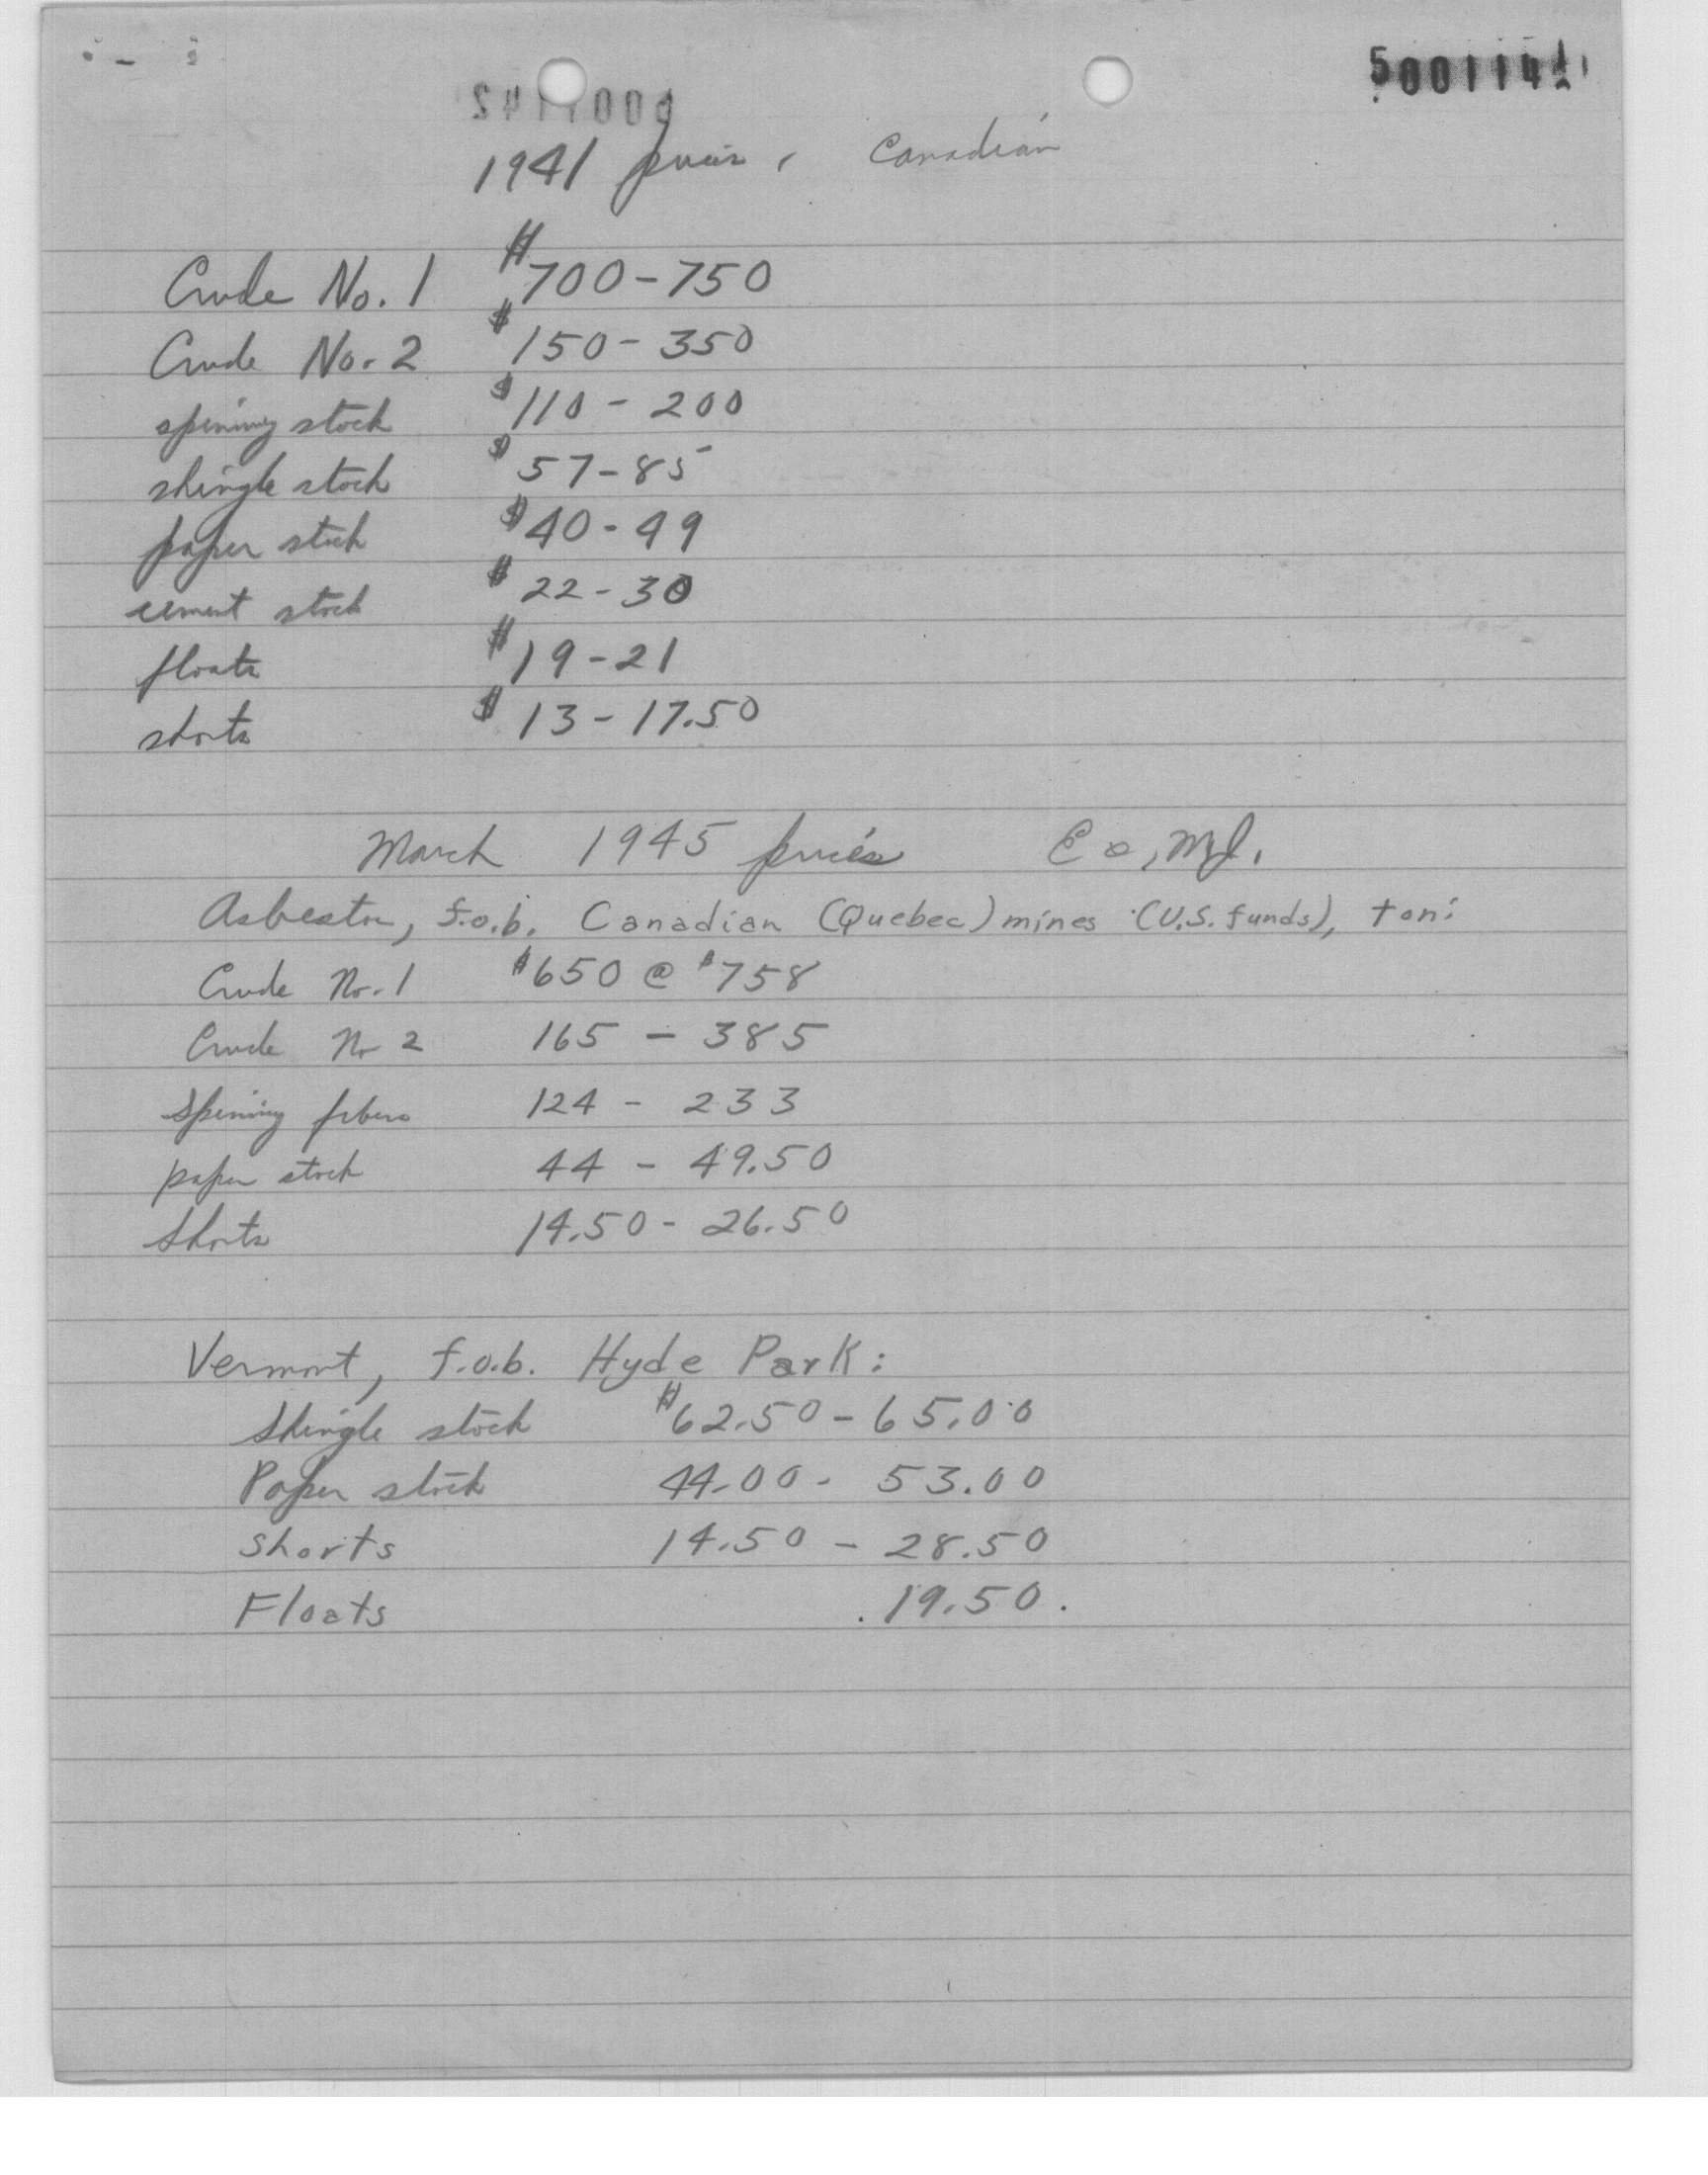 1941 prices, Canadian
Crude No. 1 $700-750
Crude No. 2 $150-350
spining stock $110-200
shingle stock $57-85
paper stock $40-49
cement stock $22-30
floats $19-21
shorts $13-17.50
March 1945 prices E &
Asbestos, f.o.b. Canadian (Quebec) mines (U.S. funds), ton:
Crude No. 1 $650 @ $758
Crude No 2 165 - 385
Spining fibers 124 - 233
paper stock 44 - 49.50
Shorts 14.50 - 26.50
Vermont, f.o.b. Hyde Park:
Shingle stock $62.50 - 65.00
Paper stock 44.00 - 53.00
Shorts 14.50 - 28.50
Floats 19.50.